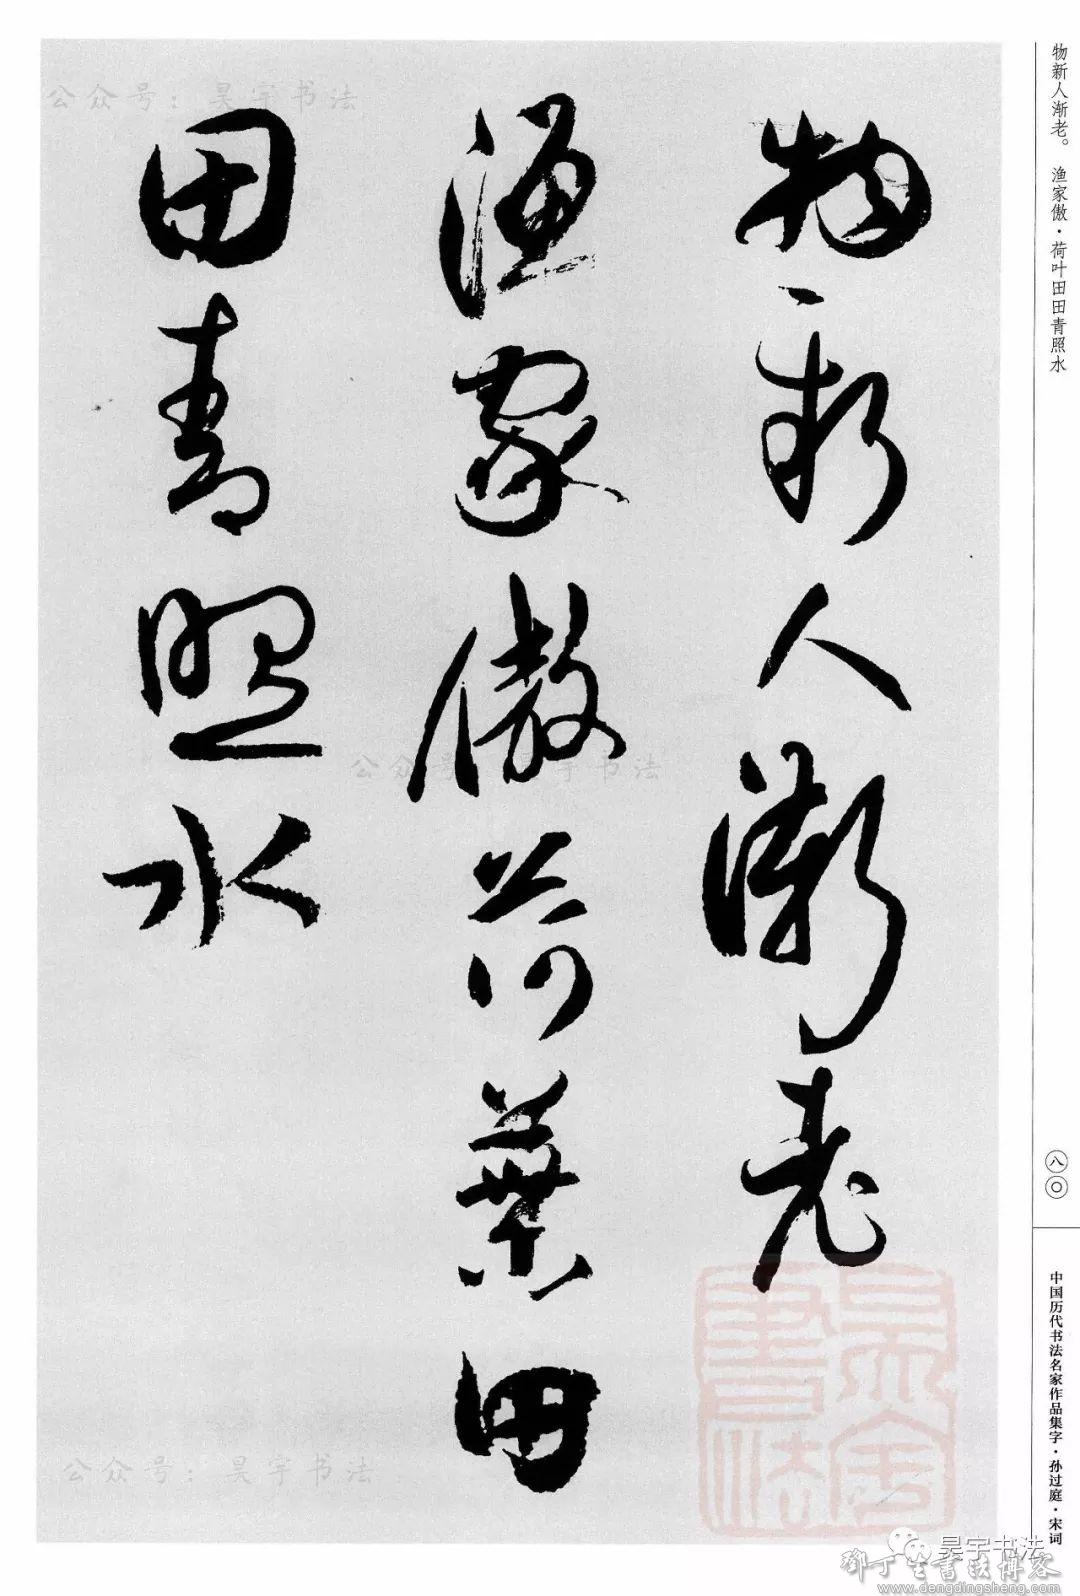 物新人渐老。 渔家傲·荷叶田田青照水
八〇
中国历代书法名家作品集字·孙过庭·宋词
物新人漸老
漁家傲荷葉田
田青照水
公众号：昊宇书法
公众号：昊宇书法
公众号：昊宇书法
昊宇書法
昊宇书法
鄧丁生書法博客
www.dengdingsheng.com